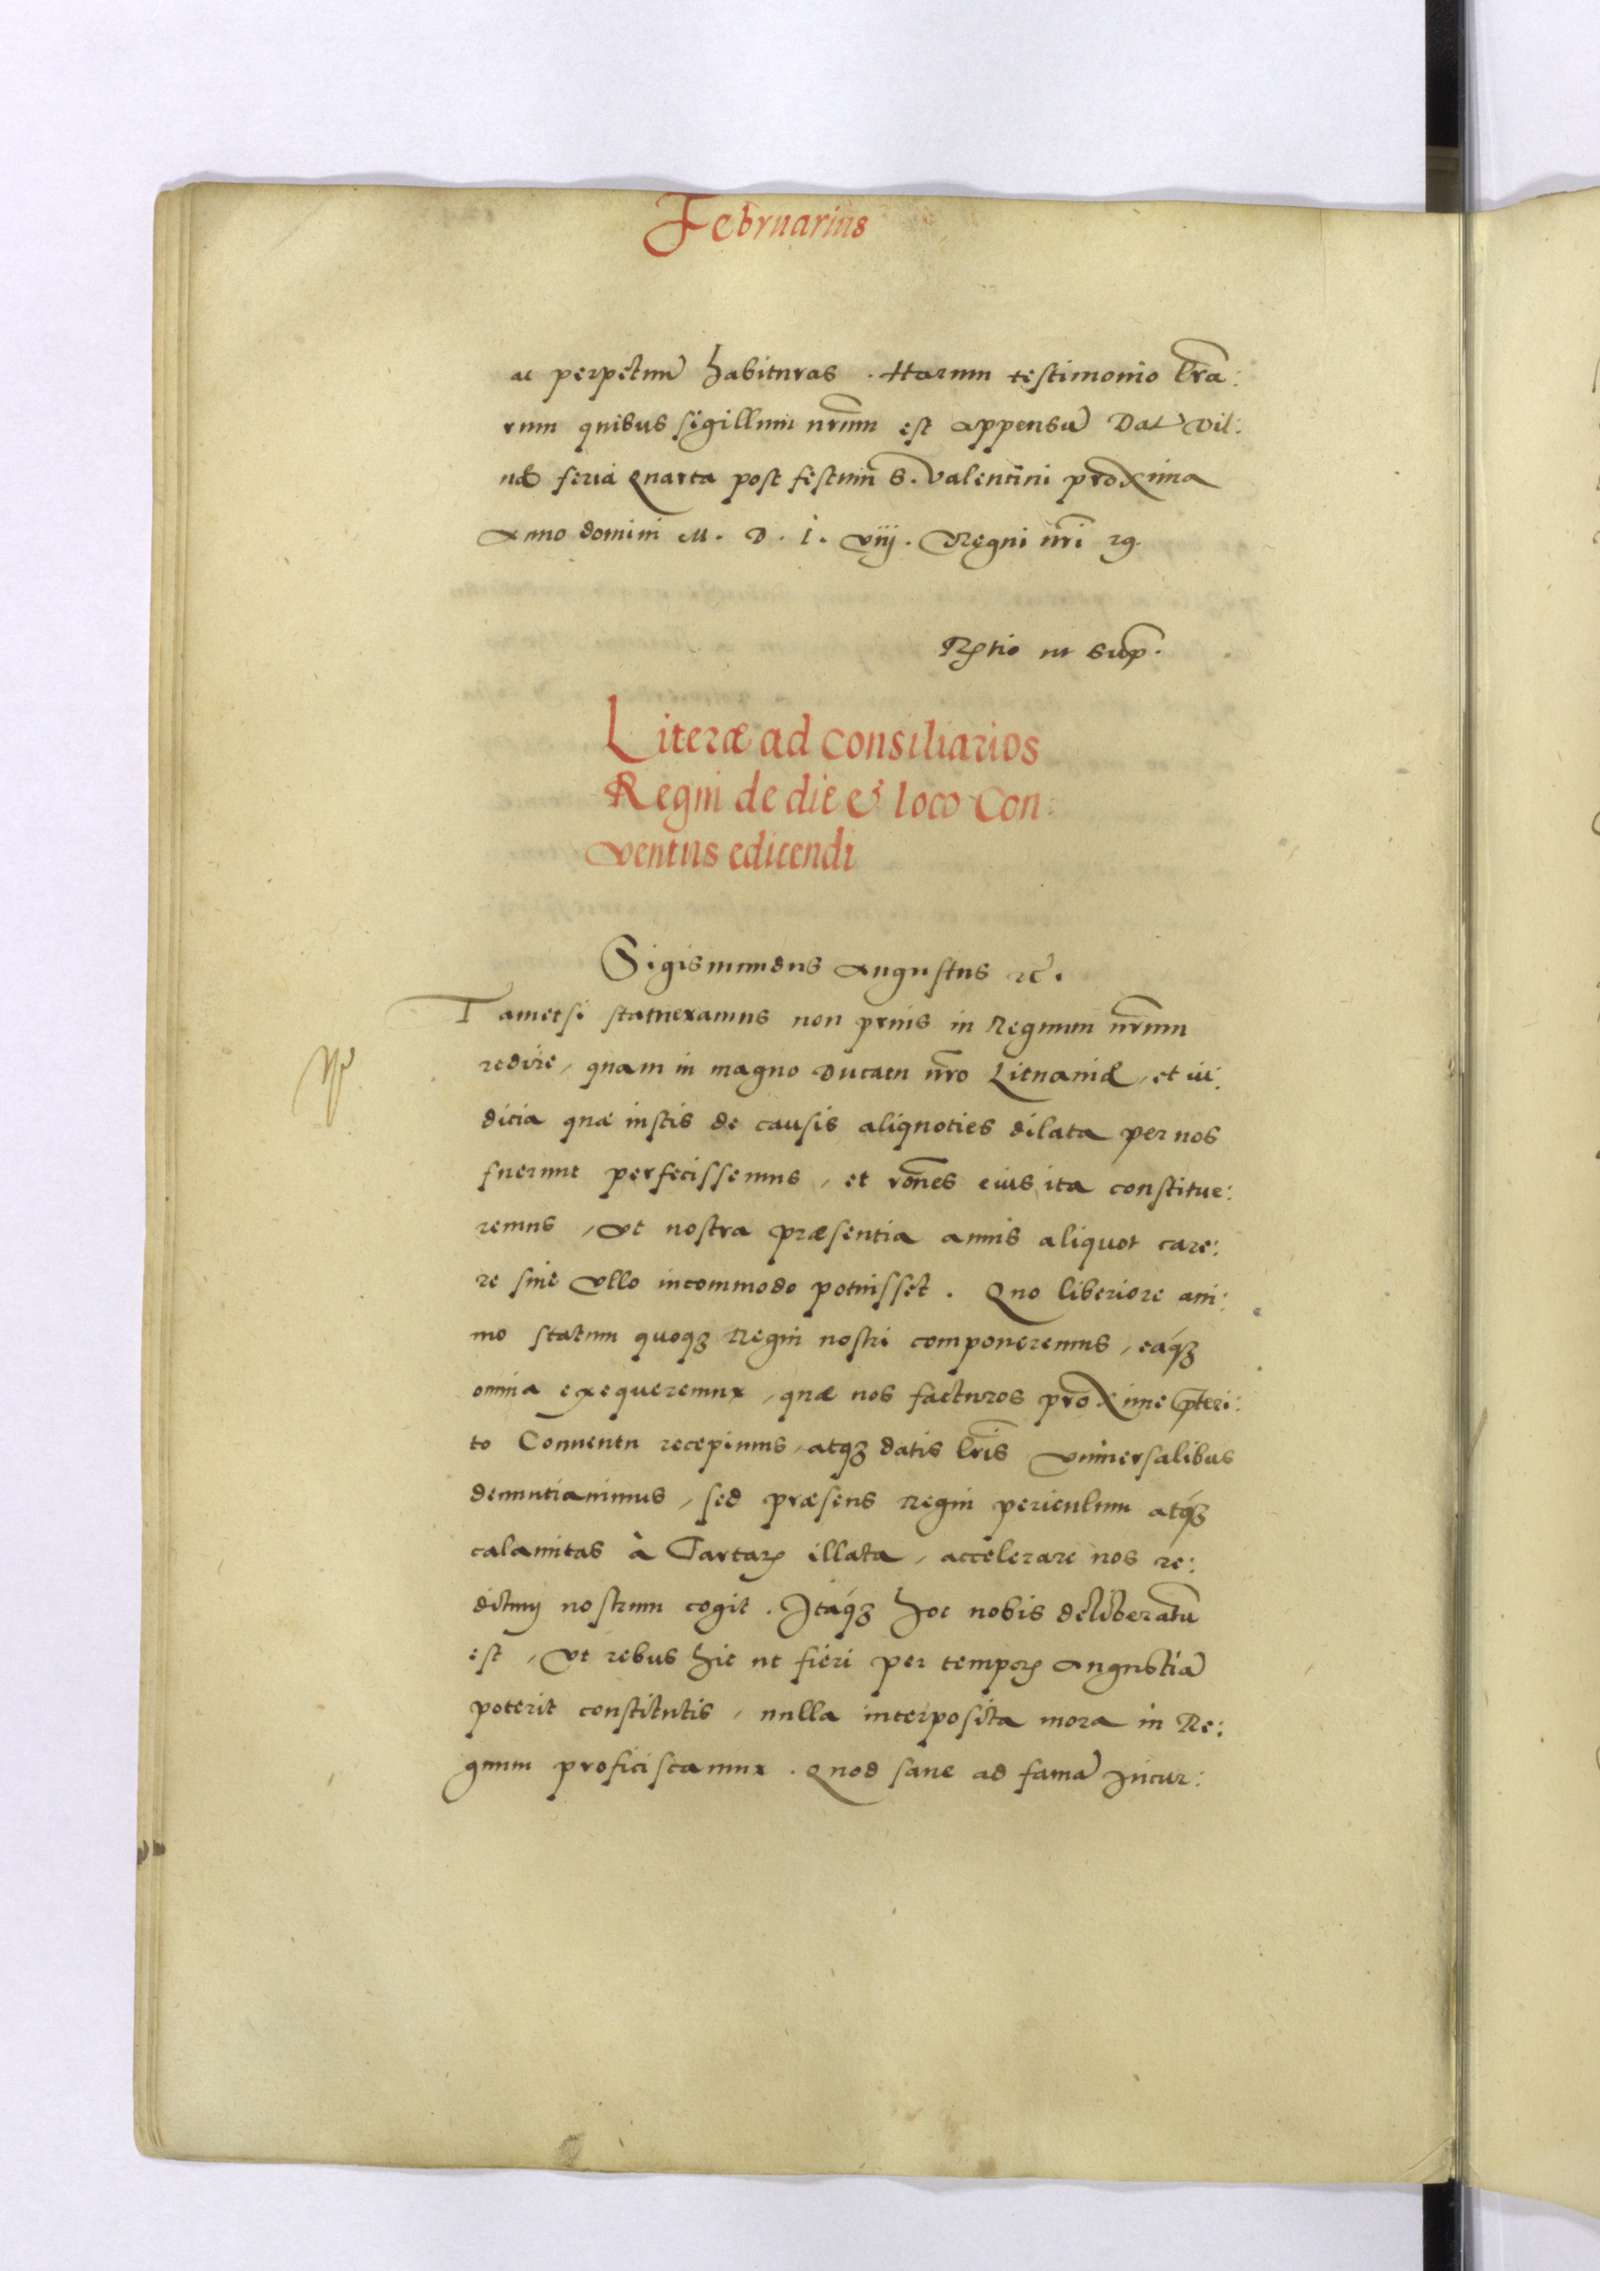 Februarius
ac perpetuũ habituras. Harum testimonio lr̃a:
rum quibus sigillum nr̃um est appensũ Dat Vil:
næ feria Quarta post festum S. Valentini proxima
Anno domini M. D. L. viij. Regni nr̃i 29.
Rtio ut sup.
Literæ ad consiliarios
Regni de die & loco Con:
ventus edicendi
Sigismundus Augustus rc̃.
Tametsi statueramus non prius in Regnum nr̃um
redire, quam in magno Ducatu nr̃o Lituaniæ, et iu:
dicia quæ iustis de causis aliquoties dilata per nos
fuerunt perfecissemus, et rõnes eius ita constitue:
remus, Vt nostra præsentia annis aliquot care:
re sine Vllo incommodo potuisset. Quo liberiore ani:
mo statum quoqꝫ Regni nostri componeremus, eáqꝫ
omnia exequeremur, quæ nos facturos proxime p̃teri:
to Conventu recepimus, atqꝫ datis lr̃is Vniversalibus
denuntiavimus, sed præsens Regni periculum atqꝫ
calamitas à Tartarꝝ illata, accelerare nos re:
ditum nostrum cogit. Itáqꝫ hoc nobis deliberatũ
est, Vt rebus hic ut fieri per temporꝝ Angustiã
poterit constitutis, nulla interposita mora in Re:
gnum proficiscamur. Quod sane ad famã Incur: